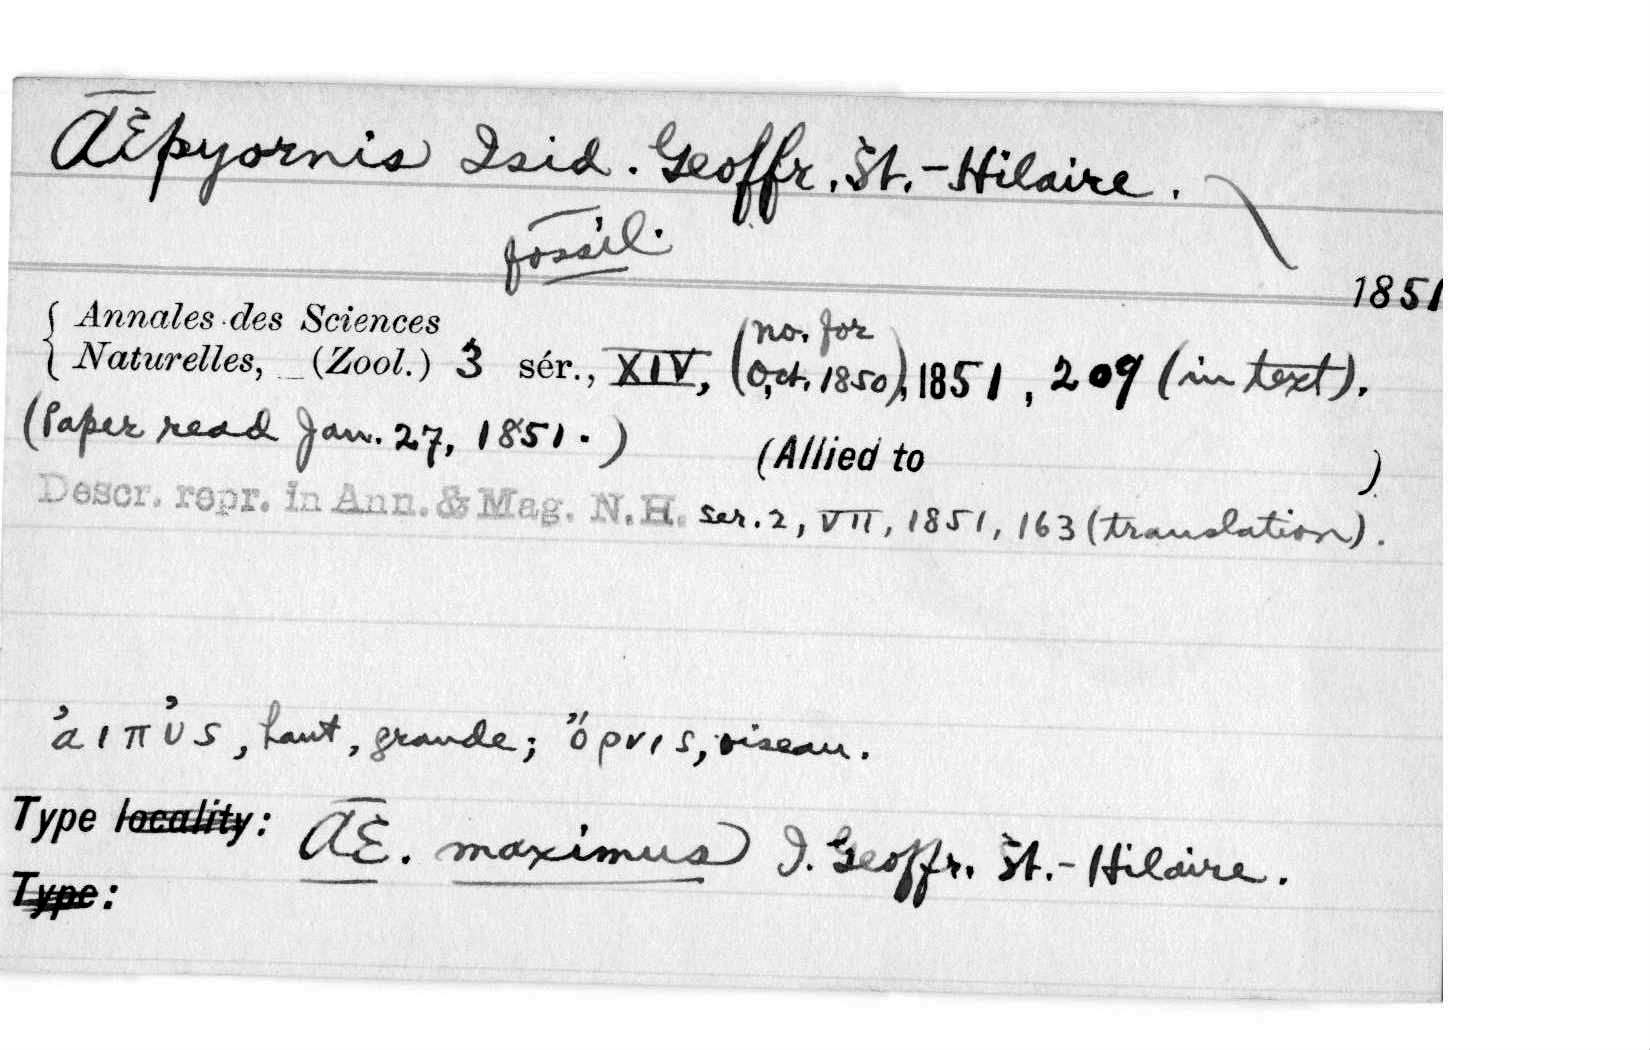 Æpyornis Isid. Geoffr. St.-Hilaire.
fossil.
1851
Annales des Sciences
Naturelles, (Zool.) 3 sér., XIV, (no. for Oct. 1850), 1851, 209 (in text).
(Paper read Jan. 27, 1851.)
(Allied to )
Descr. repr. in Ann. & Mag. N.H. ser. 2, VII, 1851, 163 (translation).
ἀιπὐς, haut, grande; ὄρνις, oiseau.
Type locality: Æ. maximus I. Geoffr. St.-Hilaire.
Type: